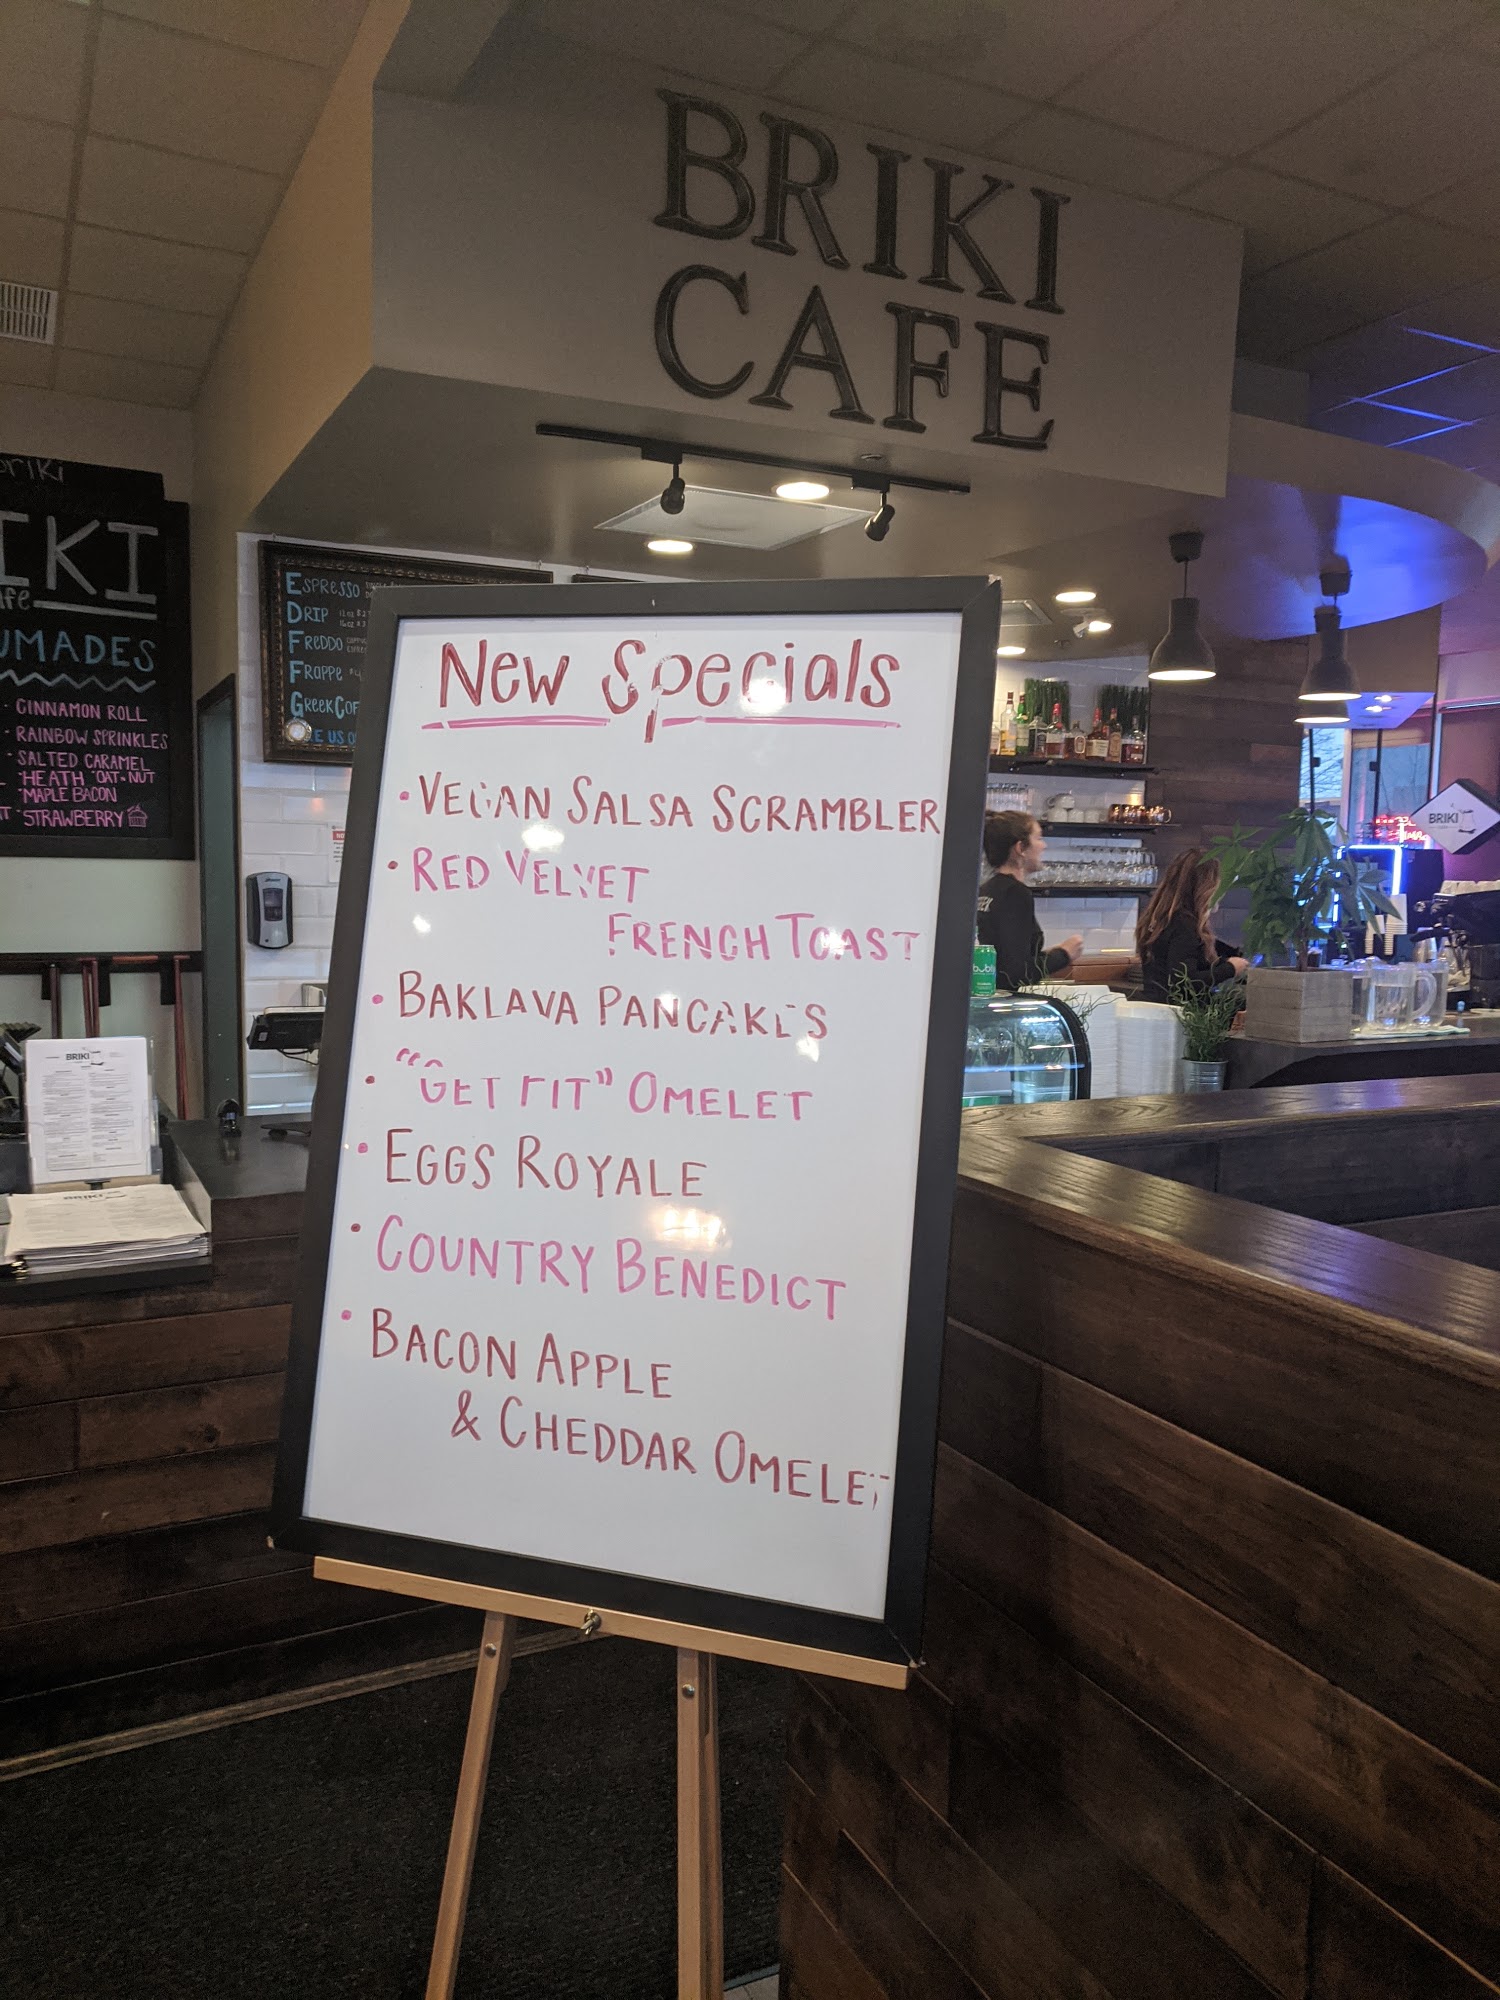 BRIKI
CAFE
New Specials
• VEGAN SALSA SCRAMBLER
• RED VELVET
FRENCH TOAST
• BAKLAVA PANCAKES
• "GET FIT" OMELET
• EGGS ROYALE
• COUNTRY BENEDICT
• BACON APPLE
& CHEDDAR OMELET
briki
IKI
UMADES
· CINNAMON ROLL
· RAINBOW SPRINKLES
· SALTED CARAMEL
· HEATH
· MAPLE BACON
· STRAWBERRY
ESPRESSO
DRIP
FREDDO
FRAPPE
GREEK COF
E US O
BRIKI
BRIKI
bubly
BRIKI